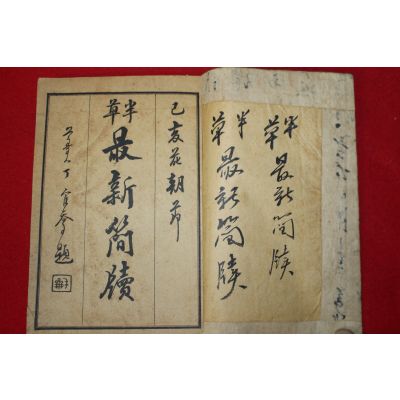 半草
最新簡牘
半草
最新簡牘
己亥花朝節
半草
最新簡牘
丁 題